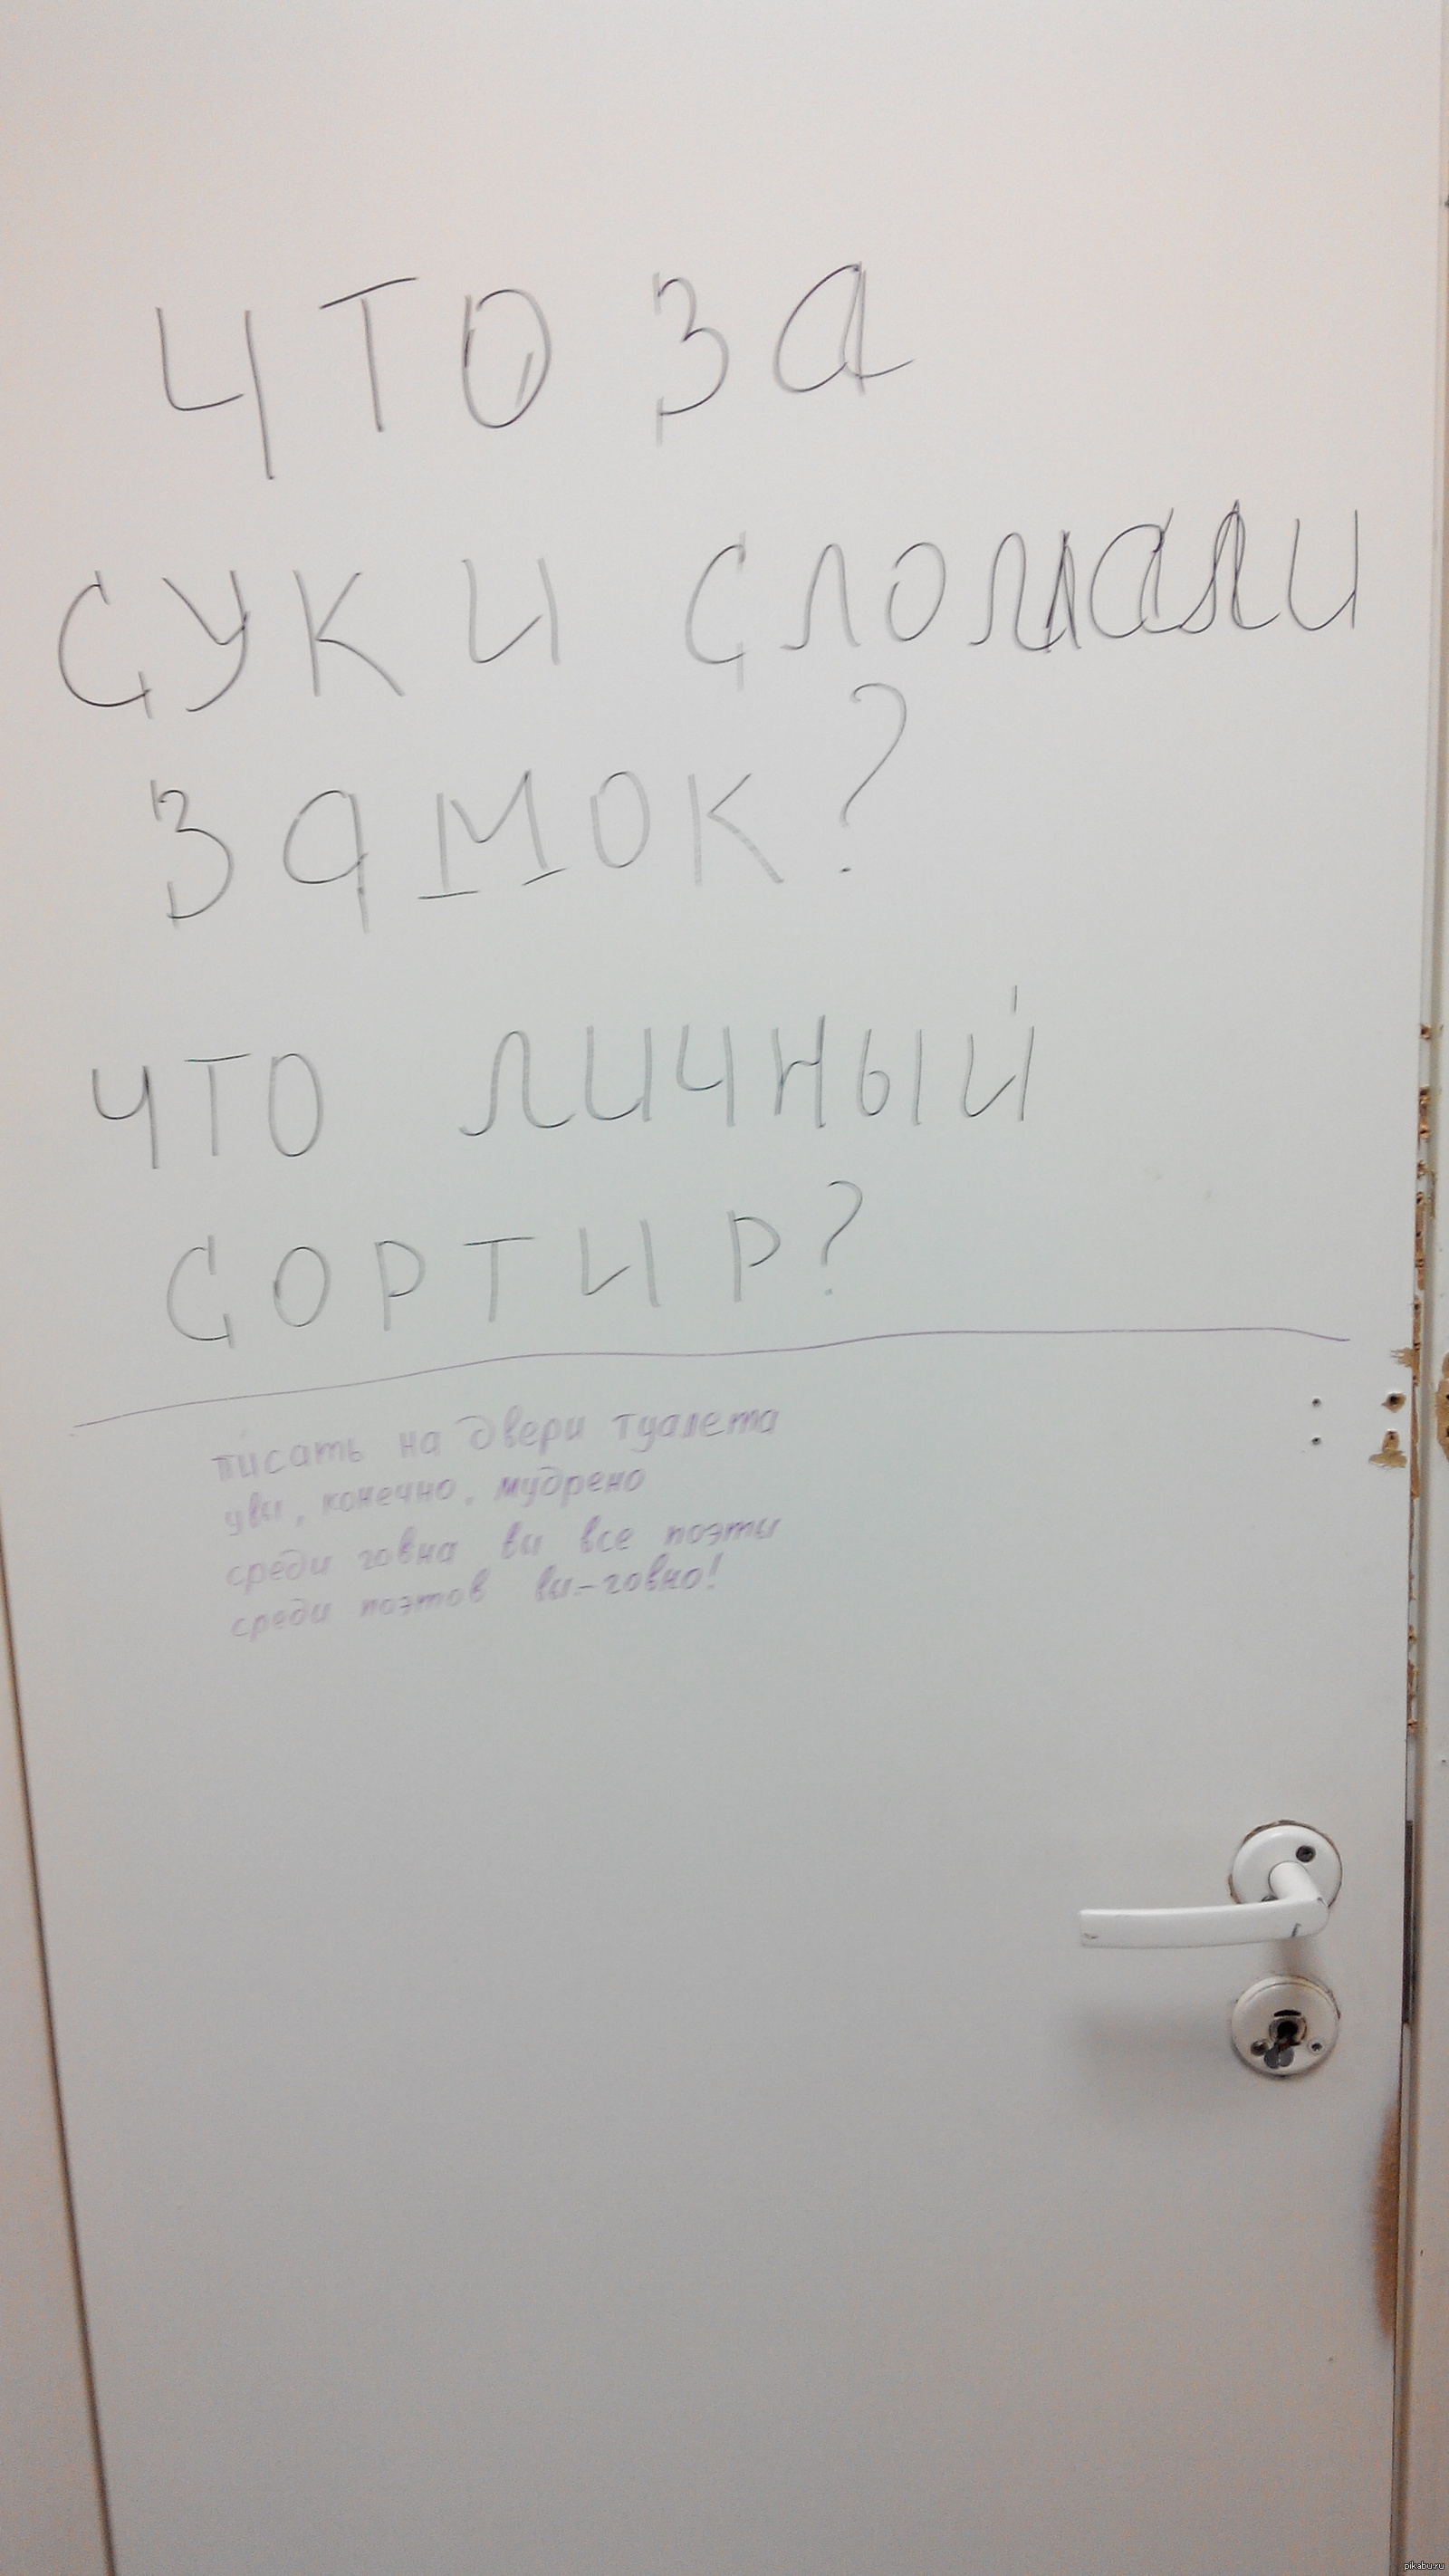 ЧТО ЗА
СУКИ СЛОМАЛИ
ЗАМОК?
ЧТО ЛИЧНЫЙ
СОРТИР?
писать на двери туалета
увы, конечно, мудрено
среди говна вы все поэты
среди поэтов вы-говно!
pikabu.ru